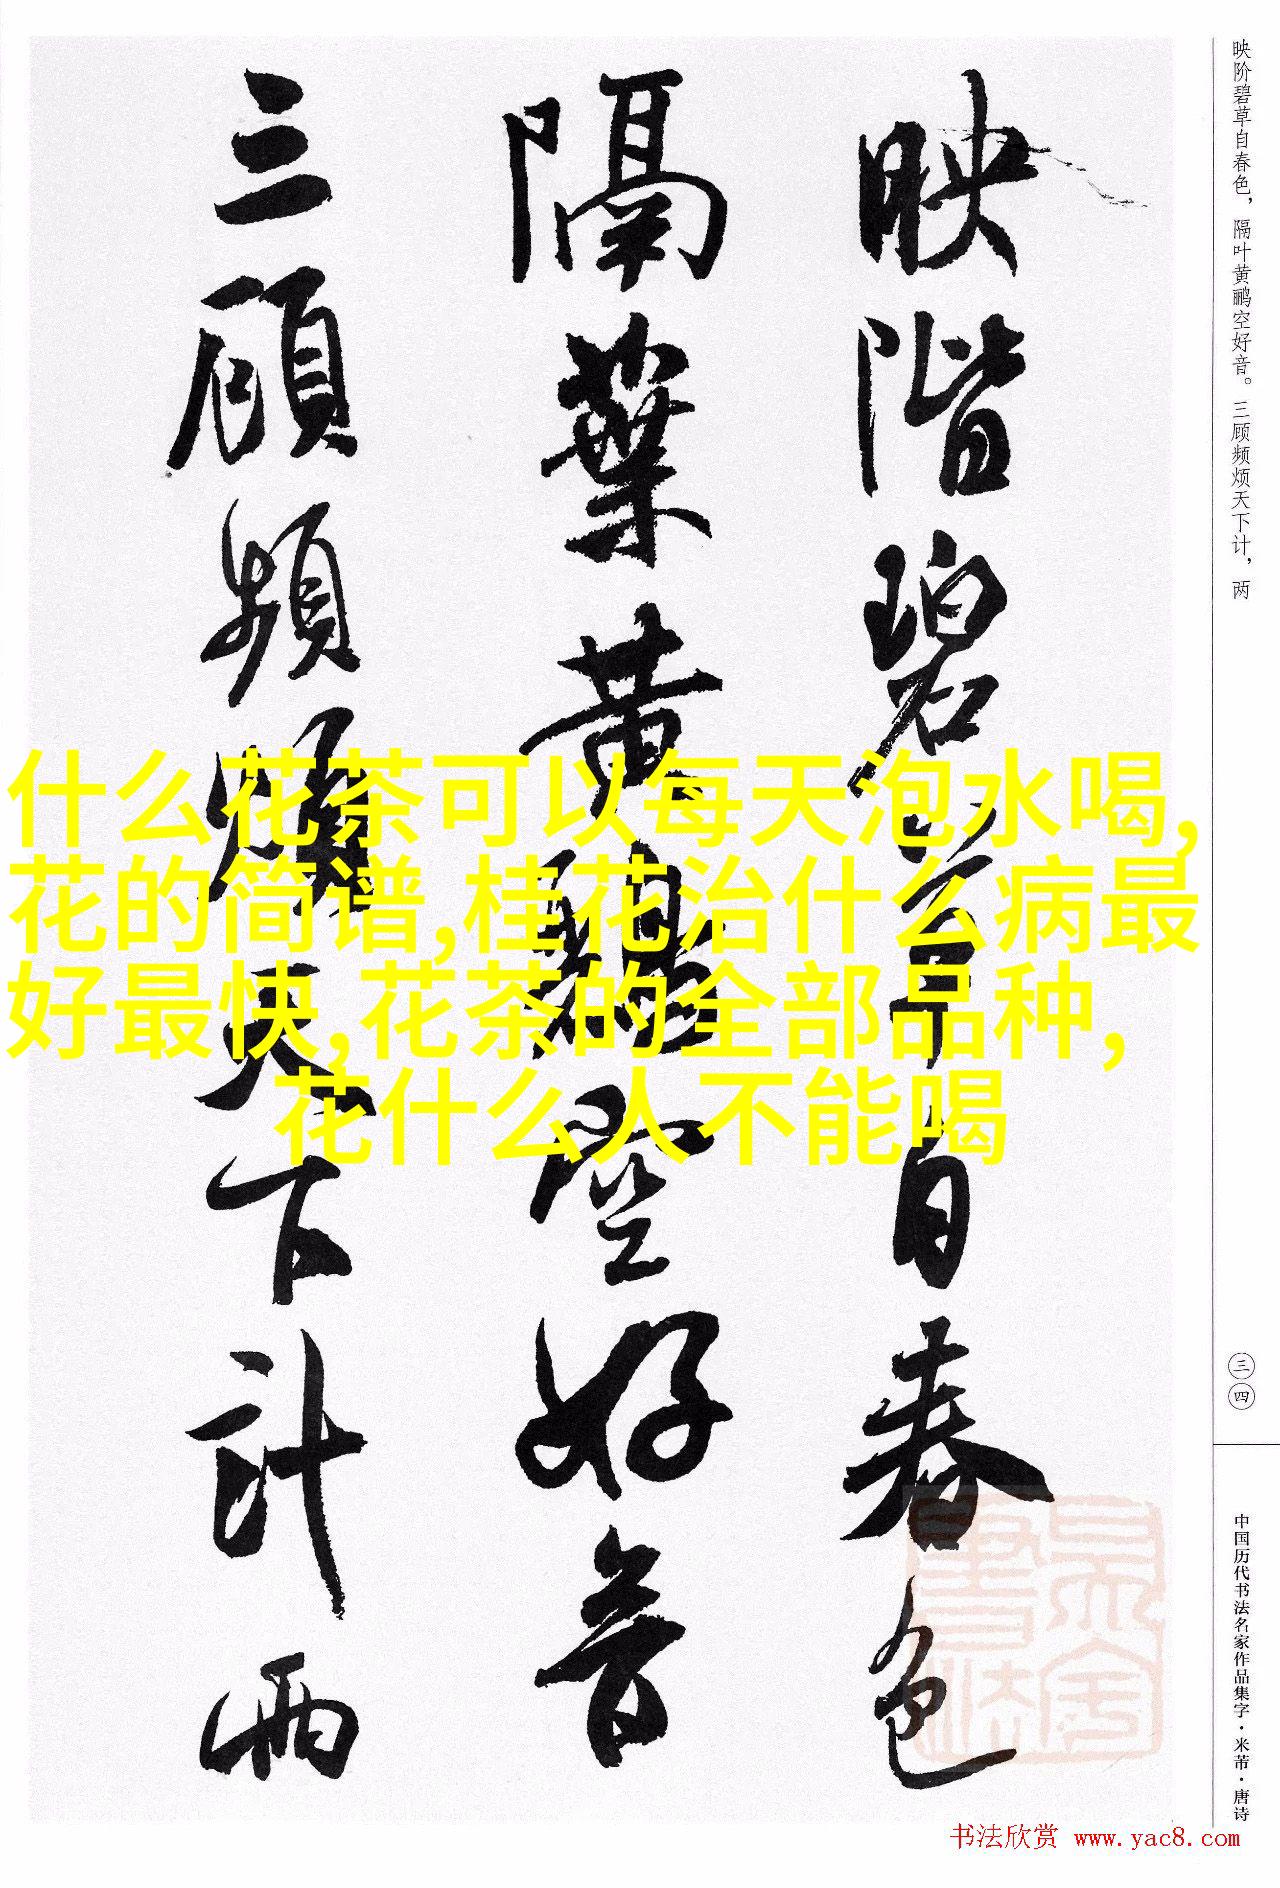 映階碧草自春色
隔葉黄鸝空好音
三顧頻煩天下計兩
映阶碧草自春色，隔叶黄鹂空好音。三顾频烦天下计，两
什么花茶可以每天泡水喝,
花的简谱,桂花治什么病最
好最快,花茶的全部品种,
花什么人不能喝
三四
中国历代书法名家作品集字·米芾·唐诗
书法欣赏 www.yac8.com